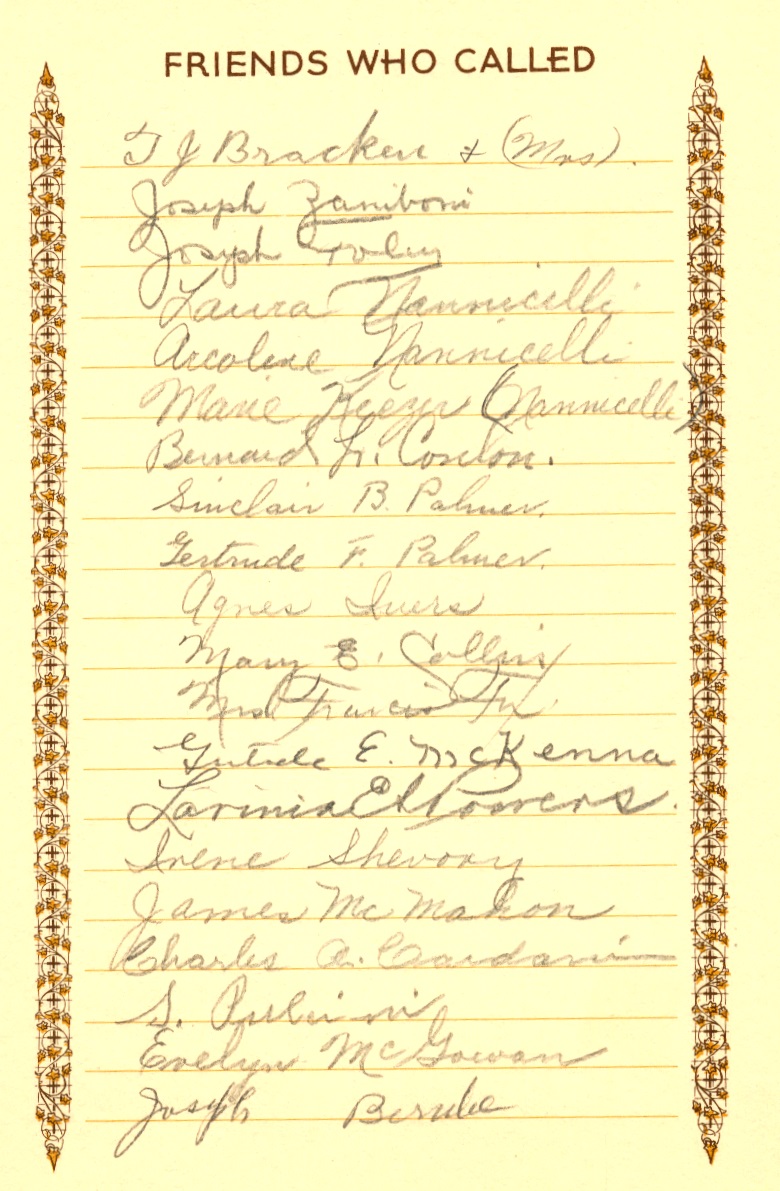 FRIENDS WHO CALLED
T J Bracken & (Mrs).
Joseph Zaniboni
Joseph Foley
Laura Nannicelli
Arcolene Nannicelli
Marie Keezer (Nannicelli)
Bernard Jr.
Sinclair B. Palmer.
Gertrude F. Palmer.
Agnes Ivers
Mary E. Collins
Mrs. Francis
Gertrude E. McKenna
Lavinia E Powers.
Irene Shevory
James McMahon
Charles A.
S.
Evelyn McGowan
Joseph Berube